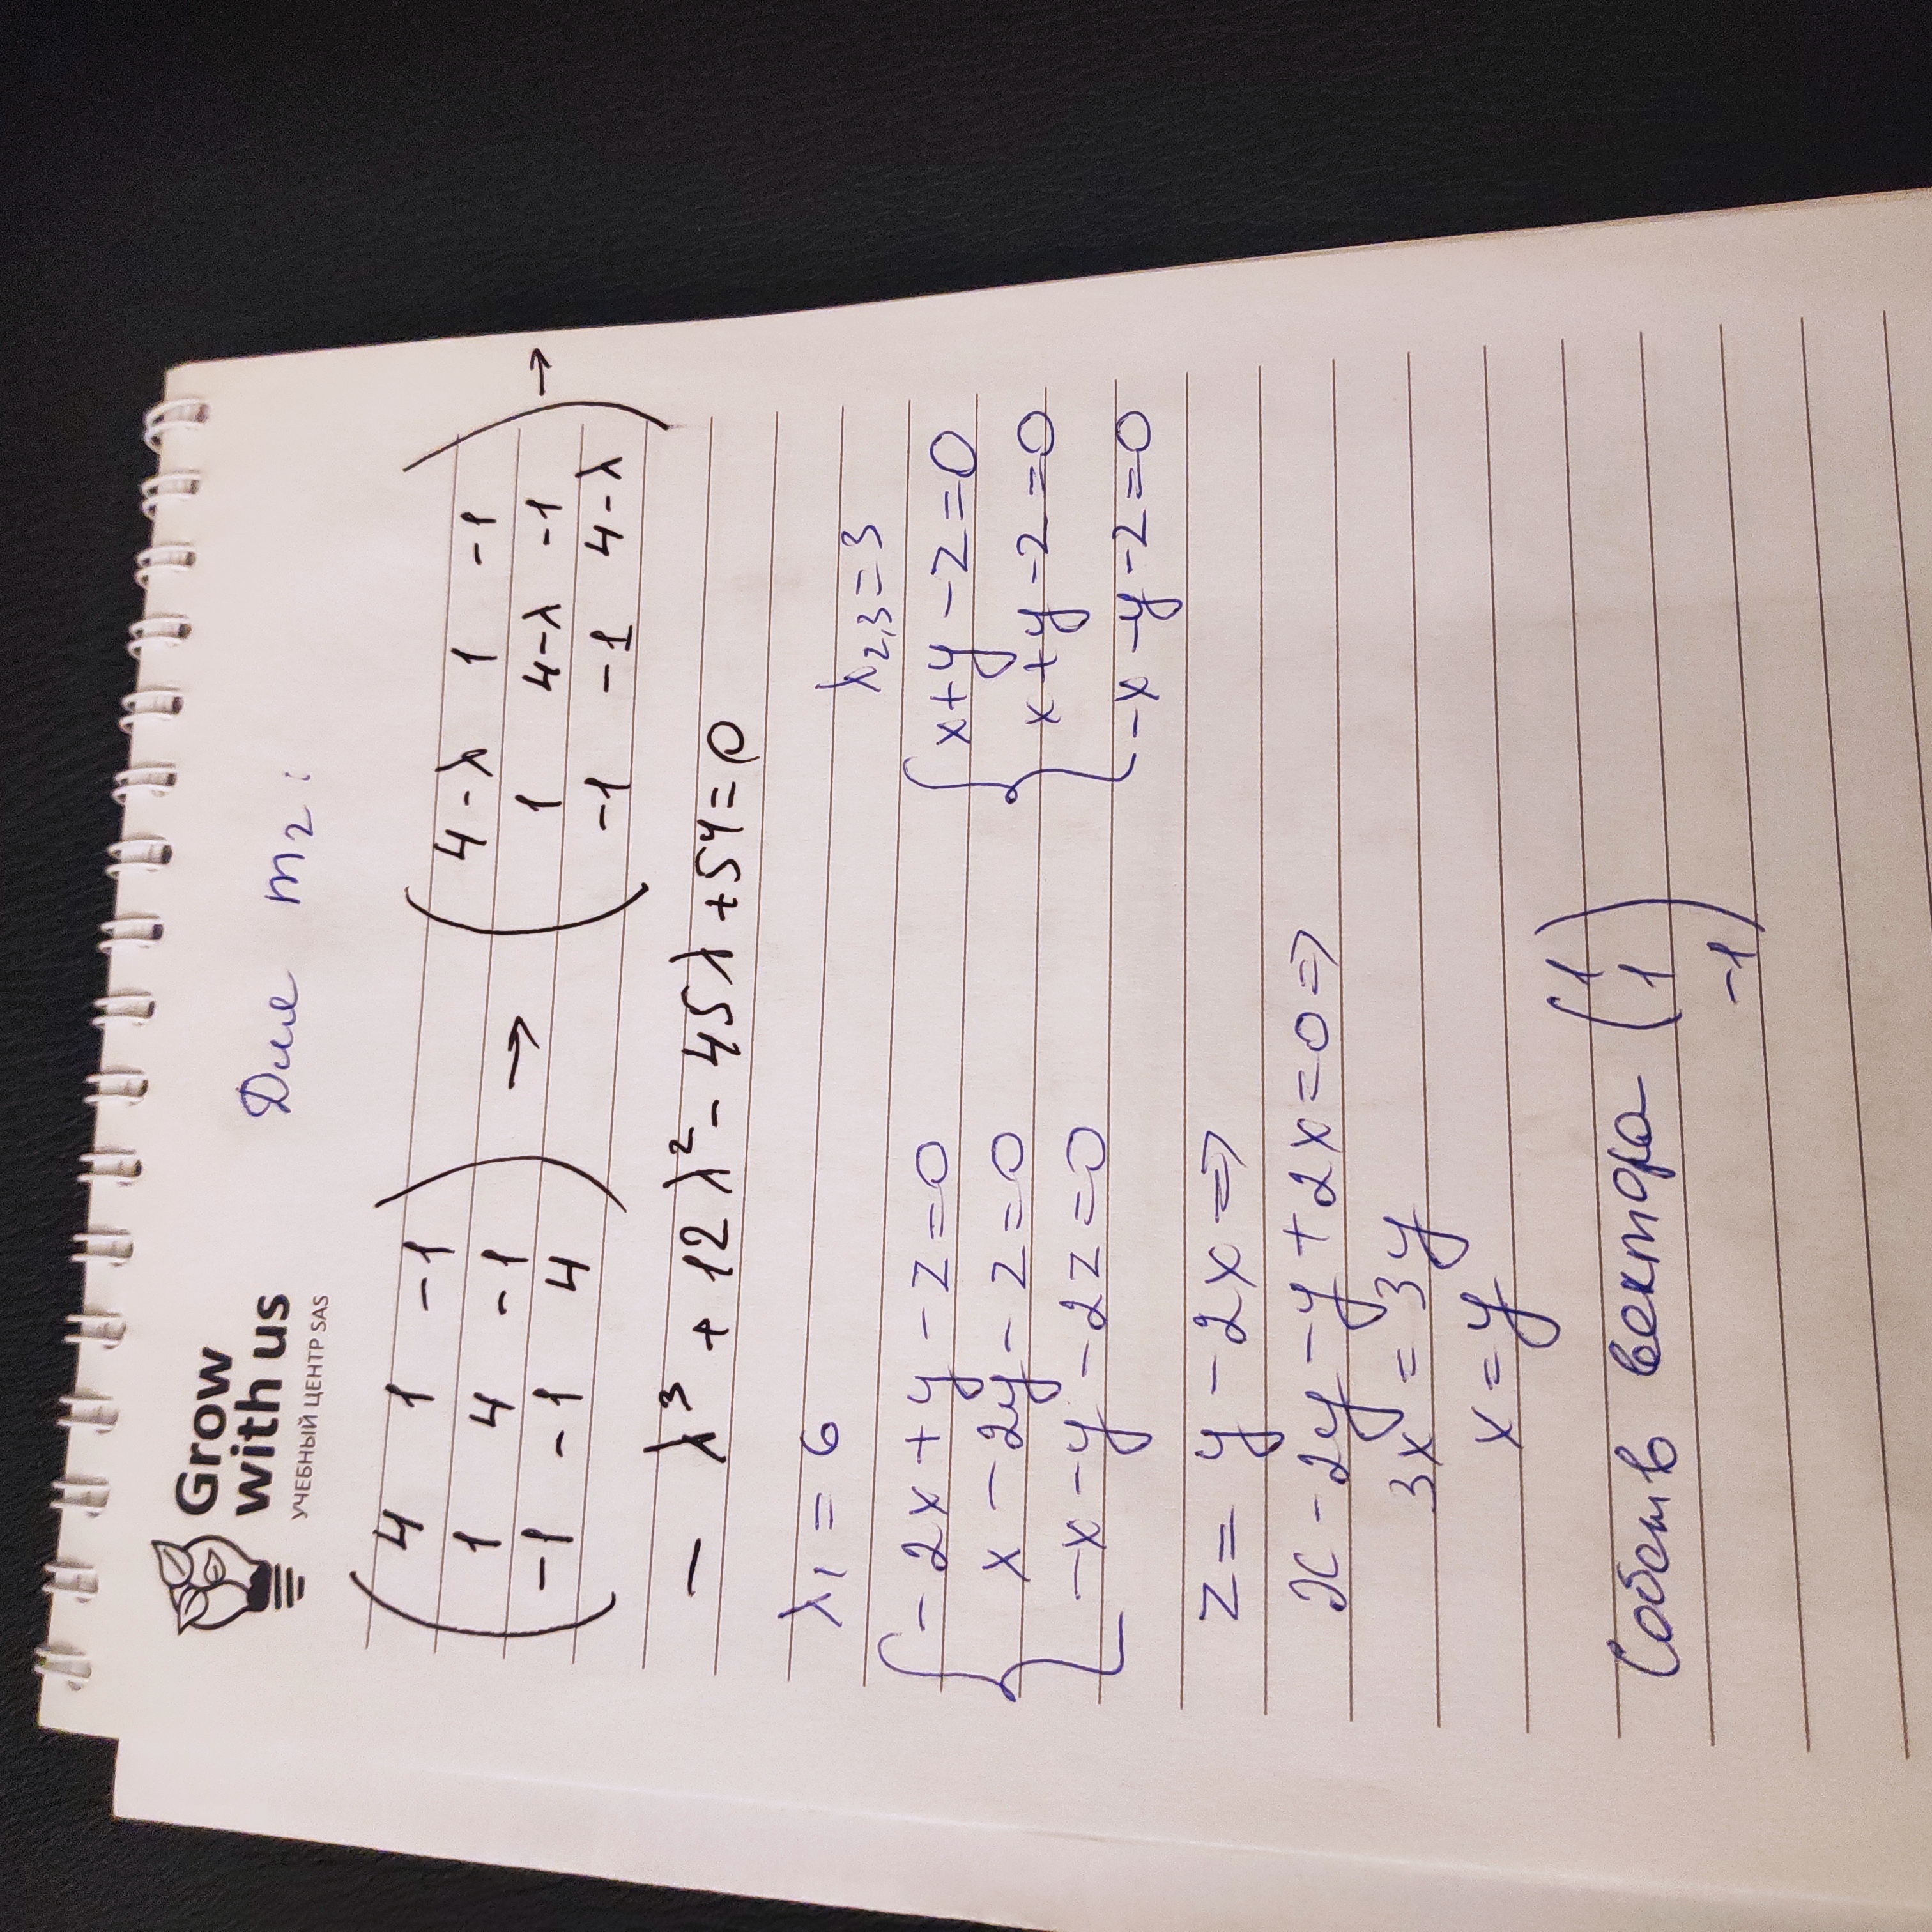 Grow
with us
УЧЕБНЫЙ ЦЕНТР SAS
Для m2:
( 4 1 -1 ) ( 4-λ 1 -1 )
( 1 4 -1 ) → ( 1 4-λ -1 ) →
( -1 -1 4 ) ( -1 -1 4-λ )
- λ³ + 12λ² - 45λ + 54 = 0
λ1 = 6 λ2,3 = 3
{ -2x + y - z = 0 { x + y - z = 0
x - 2y - z = 0 x + y - z = 0
-x - y - 2z = 0 -x - y - z = 0
z = y - 2x ⇒
x - 2y - y + 2x = 0 ⇒
3x = 3y
x = y
Собств вектора ( 1
1
-1 )